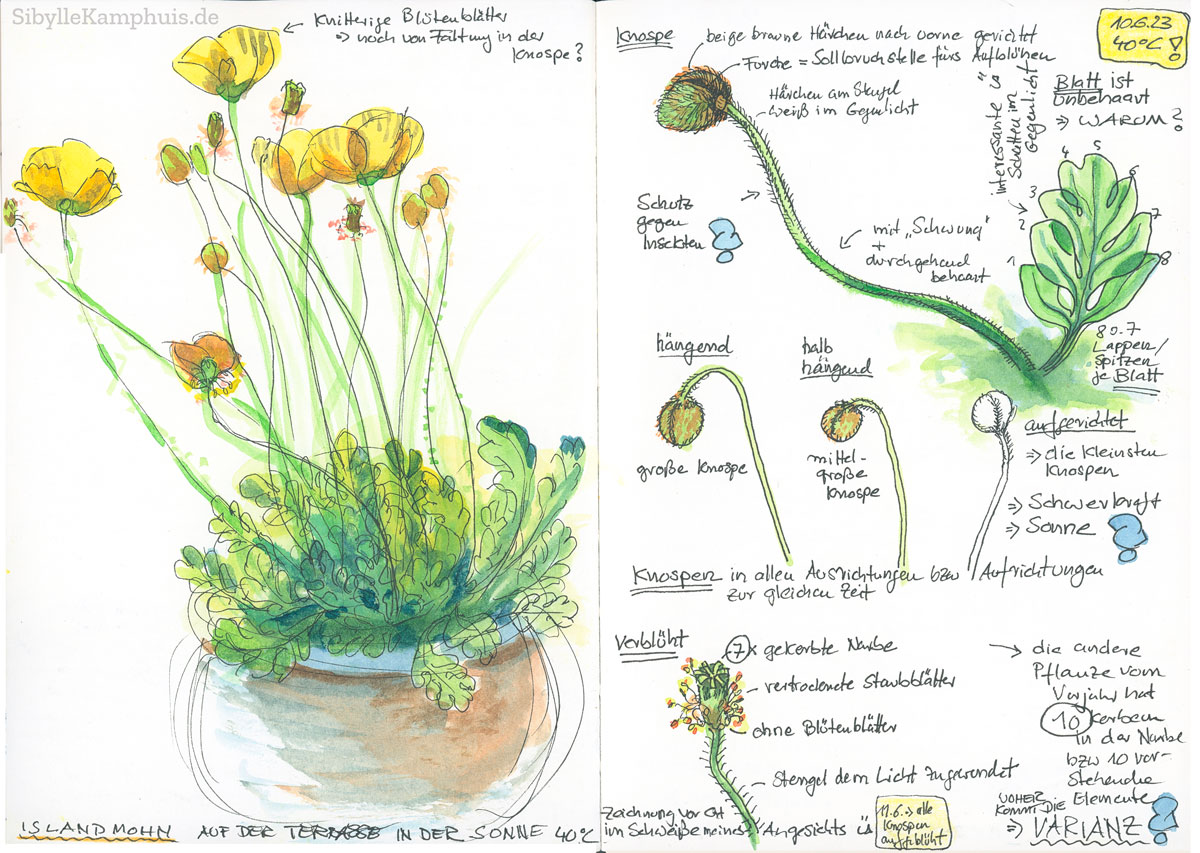 SibylleKamphuis.de
Knitterige Blütenblätter
→ noch von Faltung in der
Knospe?
ISLANDMOHN AUF DER TERRASSE IN DER SONNE 40°C
Knospe
beige braune Härchen nach vorne gerichtet
Furche = Sollbruchstelle fürs Aufblühen
Härchen am Stengel
weiß im Gegenlicht
interessante
Schatten im
Gegenlicht
10.6.23
40°C!
Blatt ist
unbehaart
⇒ WARUM?
1
2
3
4
5
6
7
8
Schutz
gegen
Insekten?
mit „Schwung"
+
durchgehend
behaart
8 o. 7
Lappen/
Spitzen
je Blatt
hängend
große Knospe
halb
hängend
mittel-
große
Knospe
aufgerichtet
⇒ die kleinsten
Knospen
⇒ Schwerkraft
⇒ Sonne ?
Knospen in allen Ausrichtungen bzw Aufrichtungen
zur gleichen Zeit
Verblüht
7x gekerbte Narbe
vertrocknete Staubblätter
ohne Blütenblätter
Stengel dem Licht zugewendet
Zeichnung vor Ort
im Schweiße meines Angesichts
11.6. → alle
Knospen
aufgeblüht
→ die andere
Pflanze vom
Vorjahr hat
10 Kerben
in der Narbe
bzw 10 vor-
stehende
Elemente
WOHER
KOMMT DIE
⇒ VARIANZ?